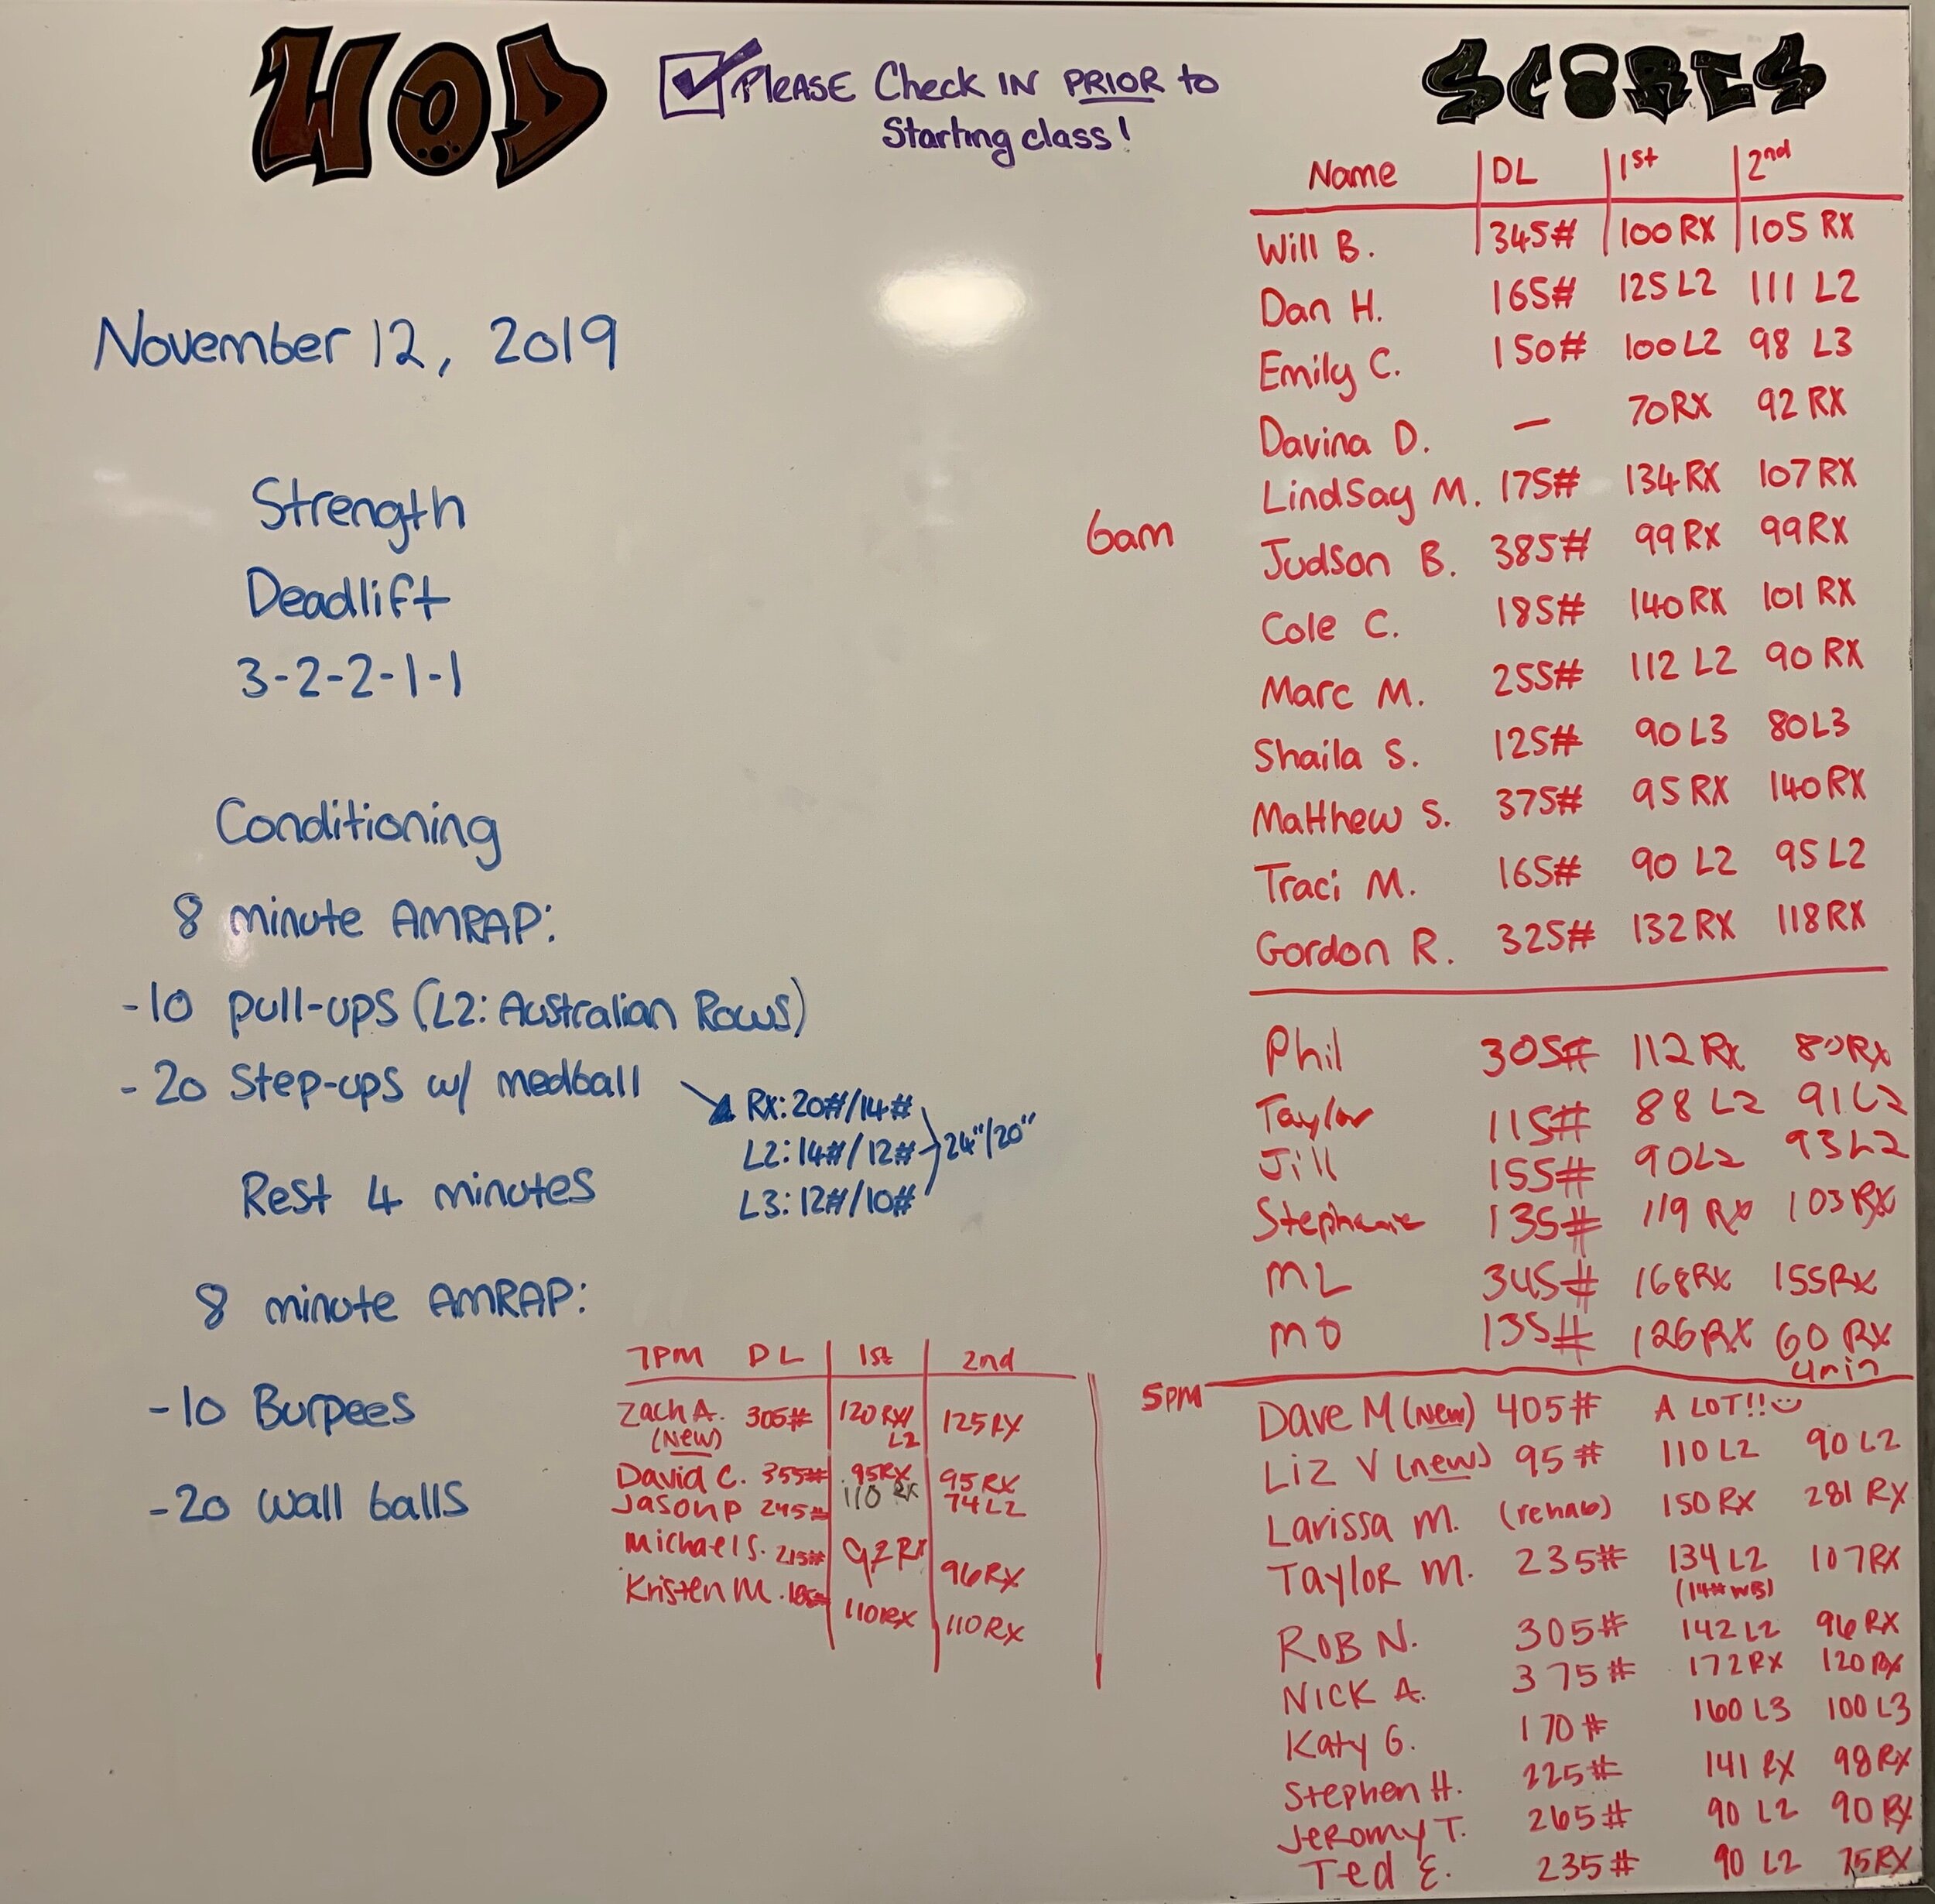 WOD
PLEASE Check IN PRIOR to
Starting class!
SCORES
November 12, 2019
Strength
Deadlift
3-2-2-1-1
Conditioning
8 minute AMRAP:
-10 pull-ups (L2: Australian Rows)
-20 Step-ups w/ medball
Rx: 20#/14#
L2: 14#/12# 24"/20"
L3: 12#/10#
Rest 4 minutes
8 minute AMRAP:
-10 Burpees
-20 wall balls
Name DL 1st 2nd
6am
Will B. 345# 100 RX 105 RX
Dan H. 165# 125 L2 111 L2
Emily C. 150# 100 L2 98 L3
Davina D. — 70 RX 92 RX
Lindsay M. 175# 134 RX 107 RX
Judson B. 385# 99 RX 99 RX
Cole C. 185# 140 RX 101 RX
Marc M. 255# 112 L2 90 RX
Shaila S. 125# 90 L3 80 L3
Matthew S. 375# 95 RX 140 RX
Traci M. 165# 90 L2 95 L2
Gordon R. 325# 132 RX 118 RX
Phil 305# 112 Rx 80 Rx
Taylor 115# 88 L2 91 L2
Jill 155# 90 L2 93 L2
Stephanie 135# 119 RX 103 RX
ML 345# 168 RX 155 RX
MO 135# 126 RX 60 RX
4min
5PM
Dave M (New) 405# A LOT!!
Liz V (new) 95# 110 L2 90 L2
Larissa M. (rehab) 150 RX 281 RX
Taylor M. 235# 134 L2 107 RX
(14# WB)
ROB N. 305# 142 L2 96 RX
NICK A. 375# 172 RX 120 RX
Katy G. 170# 160 L3 100 L3
Stephen H. 225# 141 RX 98 RX
Jeromy T. 265# 90 L2 90 RX
Ted E. 235# 90 L2 75 RX
7PM DL 1st 2nd
Zach A. 305# 120 RX/ 125 RX
(New) L2
David C. 355# 95 RX 95 RX
Jason P 245# 110 RX 74 L2
Michael S. 215# 92 RX 96 RX
Kristen M. 110 RX 110 RX